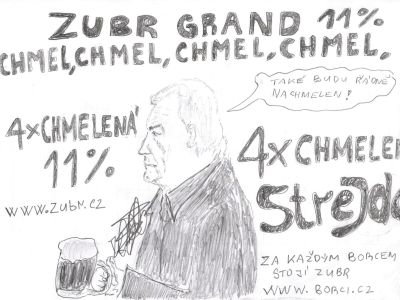 ZUBR GRAND 11%
CHMEL, CHMEL, CHMEL, CHMEL.
TAKÉ BUDU ŘÁDNĚ
NACHMELEN!
4xCHMELENÁ
11%
WWW.ZUBR.CZ
4XCHMELEN
Strejda
ZA KAŽDÝM BORCEM
STOJÍ ZUBR
WWW.BORCI.CZ